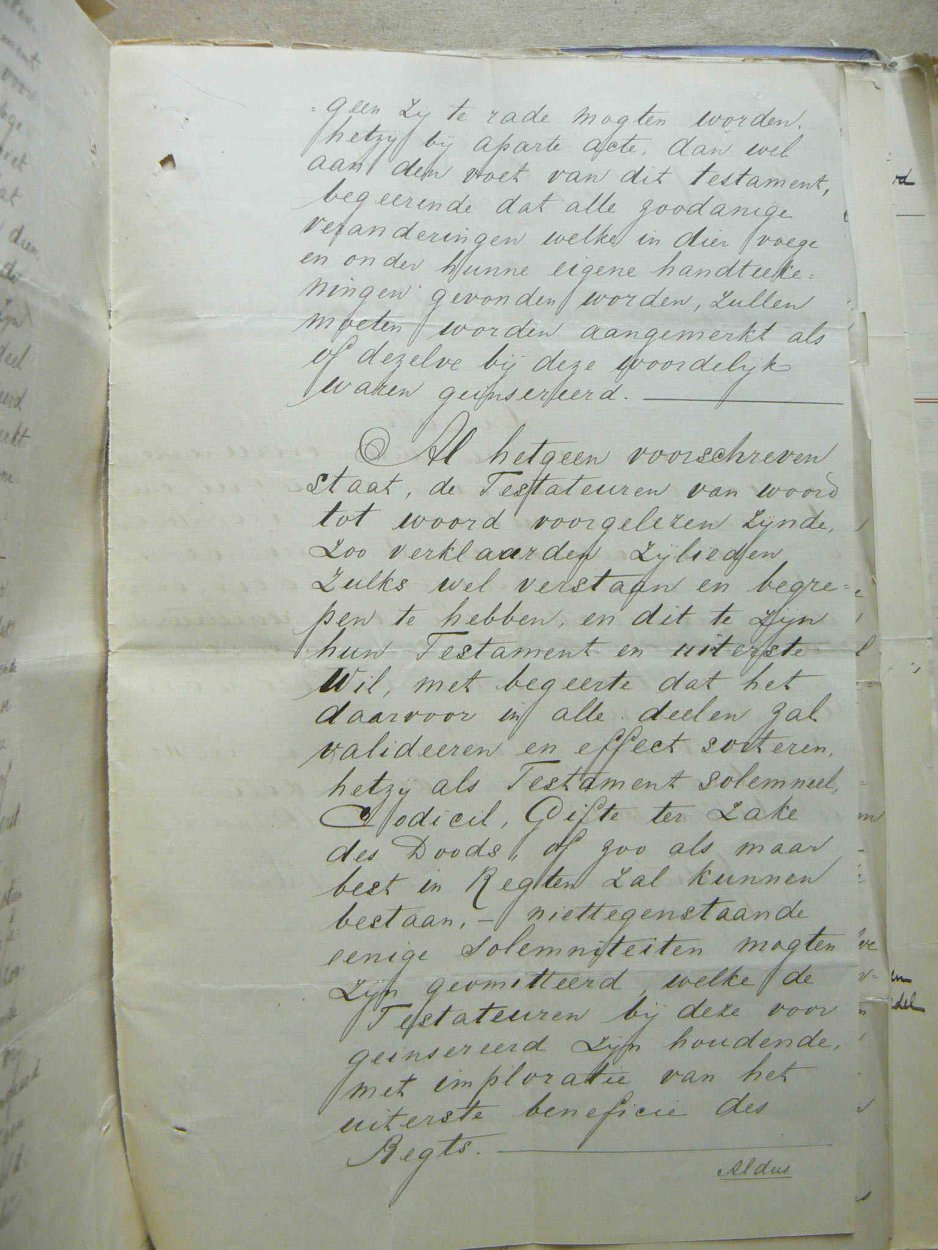 =geen zij te rade mogten worden,
hetzij bij aparte acte, dan wel
aan den voet van dit testament,
begeerende dat alle zoodanige
veranderingen welke in dier voege
en onder hunne eigene handteeke=
ningen gevonden worden, zullen
moeten worden aangemerkt als
of dezelve bij deze woordelijk
waren geinsereerd.
Al hetgeen voorschreven
staat, de Testateuren van woord
tot woord voorgelezen zynde,
zoo verklaarden zijlieden
zulks wel verstaan en begre=
pen te hebben, en dit te zijn
hun Testament en uiterste
Wil, met begeerte dat het
daarvoor in alle deelen zal
valideeren en effect sorteren,
hetzy als Testament solemneel,
Codicil, Gifte ter Zake
des Doods, of zoo als maar
best in Regten zal kunnen
bestaan, – niettegenstaande
eenige solemniteiten mogten
zijn geomitteerd, welke de
Testateuren bij deze voor
geinsereerd zijn houdende,
met imploratie van het
uiterste beneficie des
Regts.
Aldus